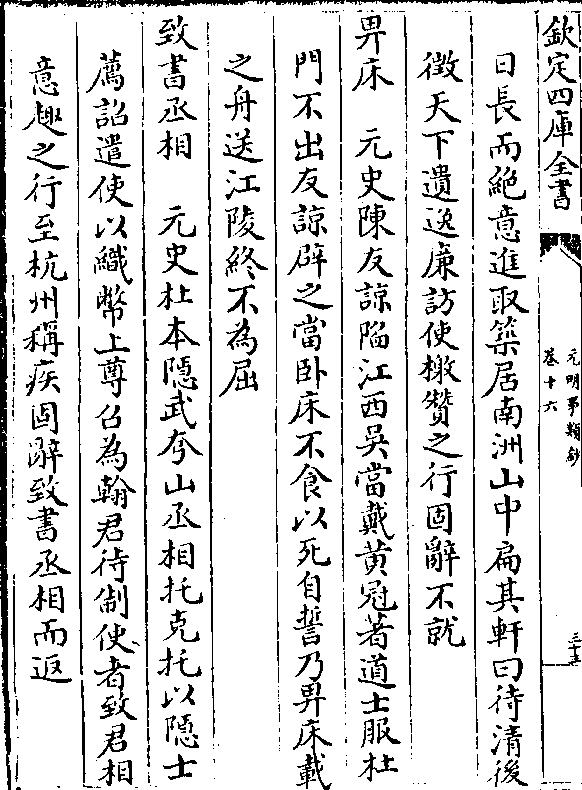 欽定四庫全書
元明事類鈔
卷十六
三十五
日長而絶意進取築居南洲山中扁其軒曰待清後
徴天下遺逸廉訪使檄贊之行固辭不就
畀床　元史陳友諒陷江西吳當戴黄冠著道士服杜
門不出友諒辟之當卧床不食以死自誓乃畀床載
之舟送江陵終不為屈
致書丞相　元史杜本隱武夸山丞相托克托以隱士
薦詔遣使以織幣上尊召為翰君待制使者致君相
意趣之行至杭州稱疾固辭致書丞相而返